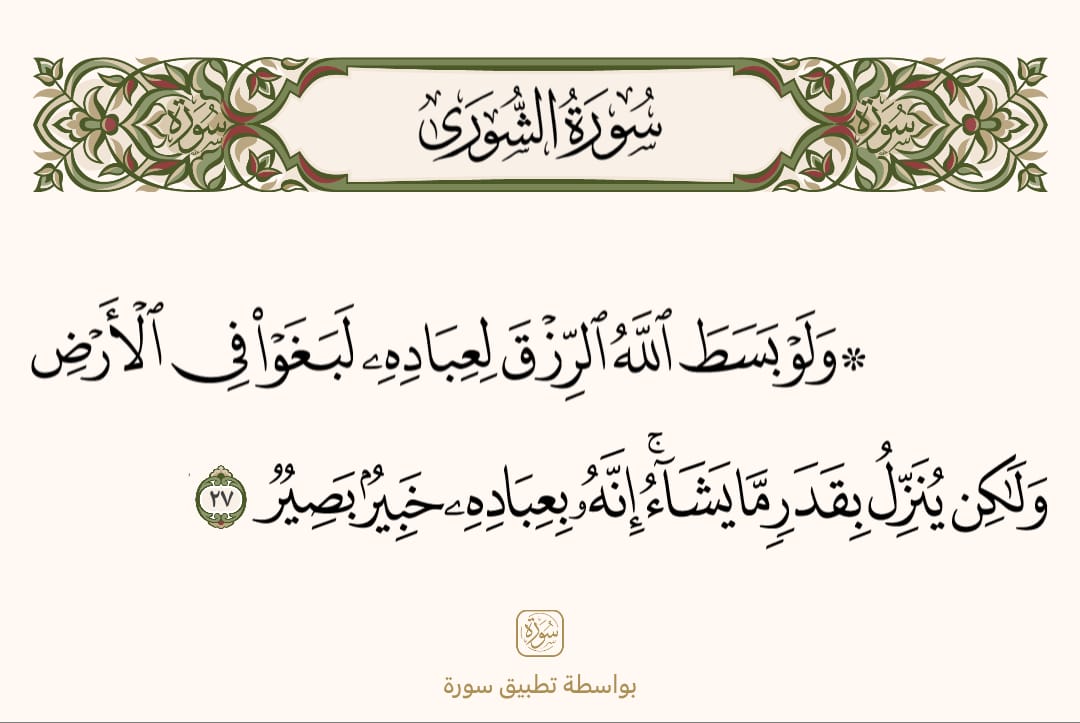 سُورَةُ الشُّورَىٰ
۞وَلَوۡ بَسَطَ ٱللَّهُ ٱلرِّزۡقَ لِعِبَادِهِۦ لَبَغَوۡاْ فِي ٱلۡأَرۡضِ
وَلَٰكِن يُنَزِّلُ بِقَدَرٖ مَّا يَشَآءُۚ إِنَّهُۥ بِعِبَادِهِۦ خَبِيرُۢ بَصِيرٞ ٢٧
سورة
بواسطة تطبيق سورة